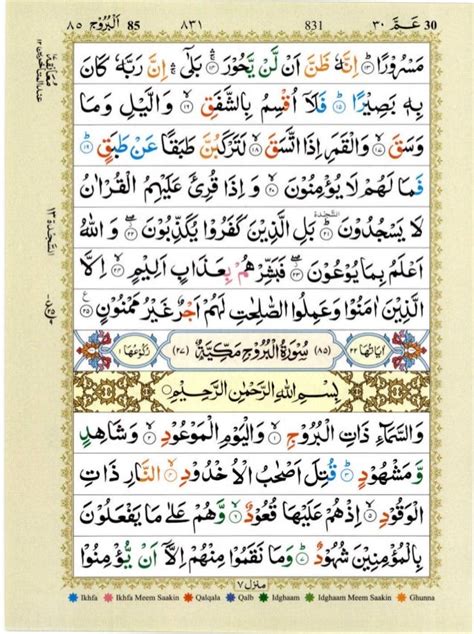 ٨٥ اَلْبُرُوْج 85 ٨٣١ 831 ٣٠ عَمَّ 30
مَسْرُوْرًا ۟ۚ ۱۳ اِنَّهٗ ظَنَّ اَنْ لَّنْ یَّحُوْرَ ۚۛ ۱۴ بَلٰۤی ۚۛ اِنَّ رَبَّهٗ كَانَ
بِهٖ بَصِیْرًا ؕ ۱۵ فَلَاۤ اُقْسِمُ بِالشَّفَقِ ۙ ۱۶ وَالَّیْلِ وَمَا
وَسَقَ ۙ ۱۷ وَالْقَمَرِ اِذَا اتَّسَقَ ۙ ۱۸ لَتَرْكَبُنَّ طَبَقًا عَنْ طَبَقٍ ؕ ۱۹
فَمَا لَهُمْ لَا یُؤْمِنُوْنَ ۙ ۲۰ وَ اِذَا قُرِئَ عَلَیْهِمُ الْقُرْاٰنُ
لَا یَسْجُدُوْنَ ؕ السَّجْدَة ۲۱ بَلِ الَّذِیْنَ كَفَرُوْا یُكَذِّبُوْنَ ؗۖ ۲۲ وَ اللّٰهُ
اَعْلَمُ بِمَا یُوْعُوْنَ ؗۖ ۲۳ فَبَشِّرْهُمْ بِعَذَابٍ اَلِیْمٍ ۙ ۲۴ اِلَّا
الَّذِیْنَ اٰمَنُوْا وَعَمِلُوا الصّٰلِحٰتِ لَهُمْ اَجْرٌ غَیْرُ مَمْنُوْنٍ ۲۵ ع
اٰیَاتُهَا ۲۲ (۸۵) سُوْرَةُ الْبُرُوْجِ مَكِّیَّةٌ (۲۷) رُكُوْعُهَا ۱
بِسْمِ اللّٰهِ الرَّحْمٰنِ الرَّحِیْمِ
وَالسَّمَآءِ ذَاتِ الْبُرُوْجِ ۙ ۱ وَالْیَوْمِ الْمَوْعُوْدِ ۙ ۲ وَشَاهِدٍ
وَّمَشْهُوْدٍ ؕ ۳ قُتِلَ اَصْحٰبُ الْاُخْدُوْدِ ۙ ۴ النَّارِ ذَاتِ
الْوَقُوْدِ ۙ ۵ اِذْ هُمْ عَلَیْهَا قُعُوْدٌ ۙ ۶ وَّهُمْ عَلٰی مَا یَفْعَلُوْنَ
بِالْمُؤْمِنِیْنَ شُهُوْدٌ ؕ ۷ وَمَا نَقَمُوْا مِنْهُمْ اِلَّاۤ اَنْ یُّؤْمِنُوْا
منزل ۷
Ikhfa Ikhfa Meem Saakin Qalqala Qalb Idghaam Idghaam Meem Saakin Ghunna
معانقة
عند المتاخرين ۱۲
السَّجْدَة ۱۳